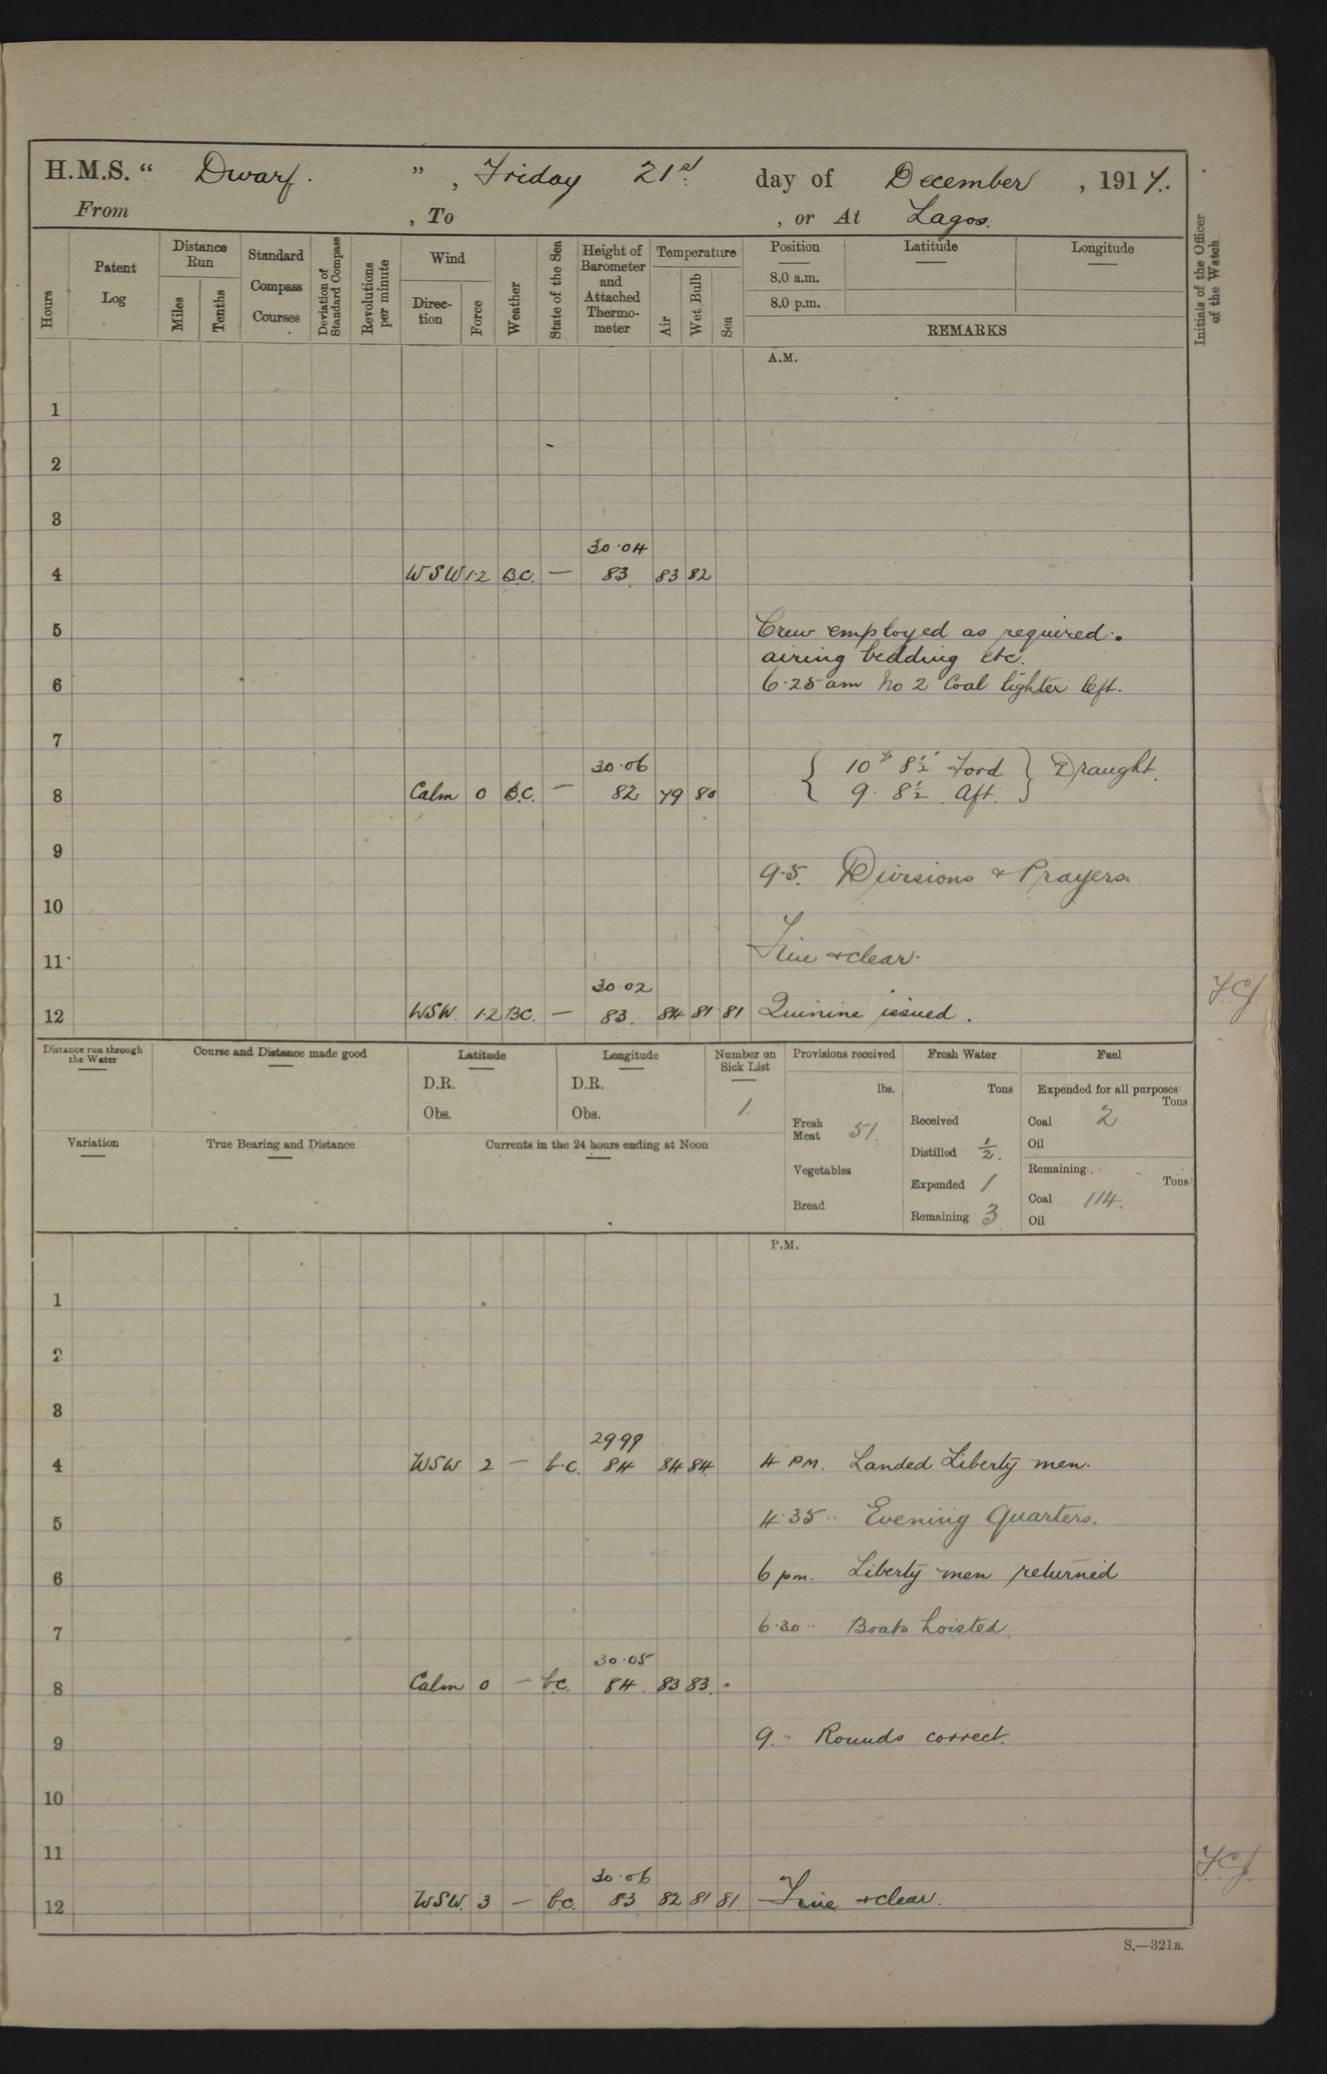 H.M.S. “ Dwarf. ” , Friday 21st day of December , 1917.
From , To , or At Lagos.
Hours
Patent Log
Distance Run
Miles
Tenths
Standard Compass Courses
Deviation of Standard Compass
Revolutions per minute
Wind
Direc-tion
Force
Weather
State of the Sea
Height of Barometer and Attached Thermo-meter
Temperature
Air
Wet Bulb
Sea
Position Latitude Longitude
8.0 a.m.
8.0 p.m.
REMARKS
Initials of the Officer of the Watch.
A.M.
1
2
3
30.04
4 WSW 1.2 B.C. — 83 83 82
5 Crew employed as required.
airing bedding etc.
6 6.25 am No 2 Coal lighter left.
7
30.06 { 10' 8½" Ford } Draught.
8 Calm 0 B.C. — 82 79 80 { 9. 8½ Aft. }
9
9.5. Divisions & Prayers
10
11 Fine & clear.
30.02
12 WSW. 1.2 BC. — 83. 84 81 81 Quinine issued.
Distance run through the Water
Course and Distance made good
Latitude
D.R.
Obs.
Longitude
D.R.
Obs.
Number on Sick List
1
Variation
True Bearing and Distance
Currents in the 24 hours ending at Noon
Provisions received
lbs.
Fresh Meat 51.
Vegetables
Bread
Fresh Water
Tons
Received
Distilled ½.
Expended 1
Remaining 3
Fuel
Expended for all purposes
Tons
Coal 2
Oil
Remaining
Tons
Coal 114.
Oil
P.M.
1
2
3
29.99
4 WSW 2 — b.c. 84 84 84 4 PM. Landed Liberty men.
5 4.35 .. Evening Quarters.
6 6 pm. Liberty men returned
7 6.30 .. Boats hoisted.
30.05
8 Calm 0 — b.c. 84 83 83.
9 9. .. Rounds correct.
10
11
30.06
12 WSW. 3 — b.c. 83 82 81 81 Fine & clear.
S.—321B.